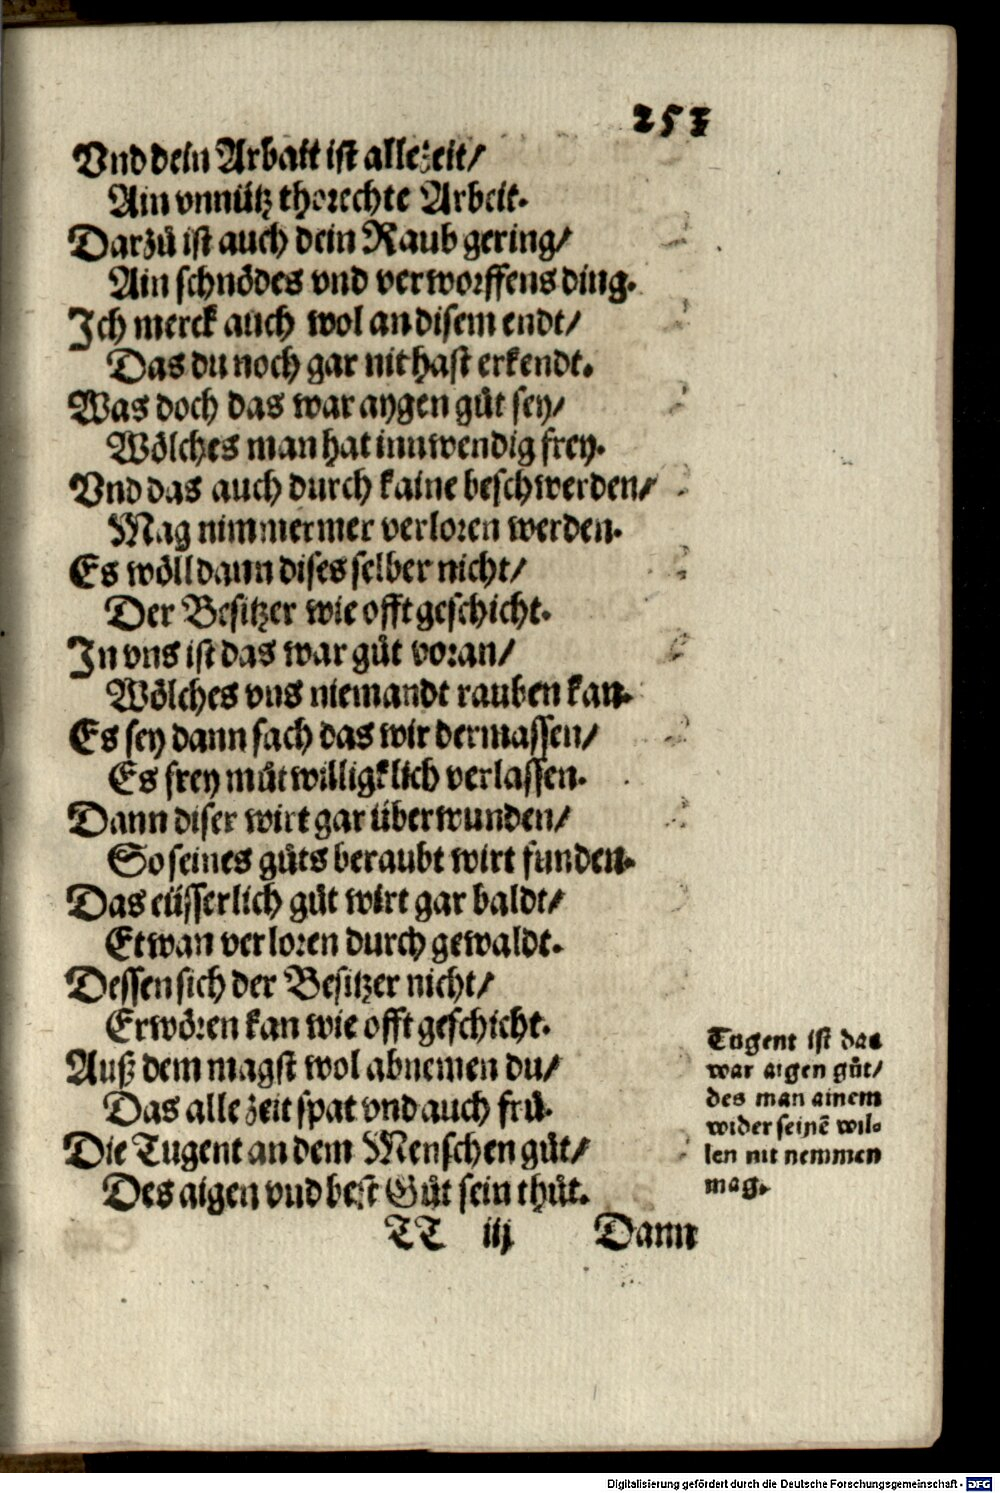 253
Vnd dein Arbait ist allezeit/
Ain vnnütz thorechte Arbeit.
Darzů ist auch dein Raub gering/
Ain schnödes vnd verworffens ding.
Ich merck auch wol an disem endt/
Das du noch gar nit hast erkendt.
Was doch das war aygen gůt sey/
Wölches man hat innwendig frey.
Vnd das auch durch kaine beschwerden/
Mag nimmermer verloren werden.
Es wöll dann dises selber nicht/
Der Besitzer wie offt geschicht.
In vns ist das war gůt voran/
Wölches vns niemandt rauben kan.
Es sey dann sach das wir dermassen/
Es frey můtwilligklich verlassen.
Dann diser wirt gar überwunden/
So seines gůts beraubt wirt funden.
Das eüsserlich gůt wirt gar baldt/
Etwan verloren durch gewaldt.
Dessen sich der Besitzer nicht/
Erwören kan wie offt geschicht.
Auß dem magst wol abnemen du/
Das alle zeit spat vnd auch frü.
Die Tugent an dem Menschen gůt/
Des aigen vnd best Gůt sein thůt.
Tugent ist das
war aigen gůt/
des man ainem
wider seinē wil-
len nit nemmen
mag.
TT iij Dann
Digitalisierung gefördert durch die Deutsche Forschungsgemeinschaft - DFG